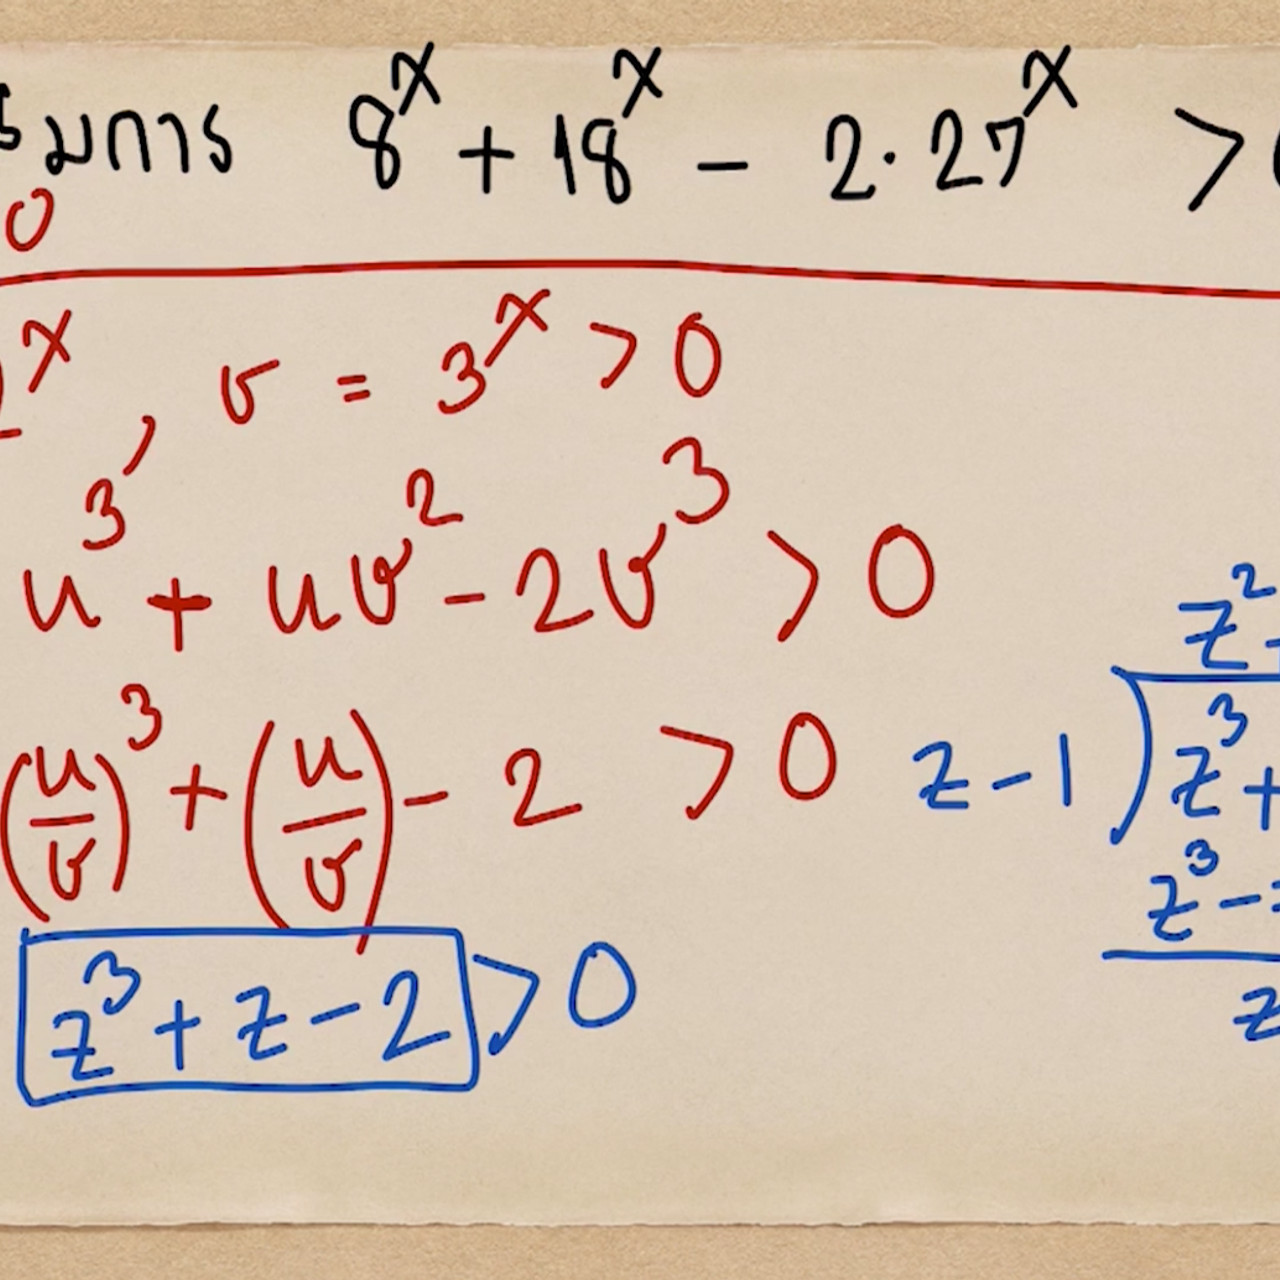 สมการ 8^x + 18^x - 2·27^x >
0
2^x, v = 3^x > 0
u^3 + uv^2 - 2v^3 > 0
(u/v)^3 + (u/v) - 2 > 0
z^3 + z - 2 > 0
z^2
z - 1 ) z^3 +
z^3 -
z